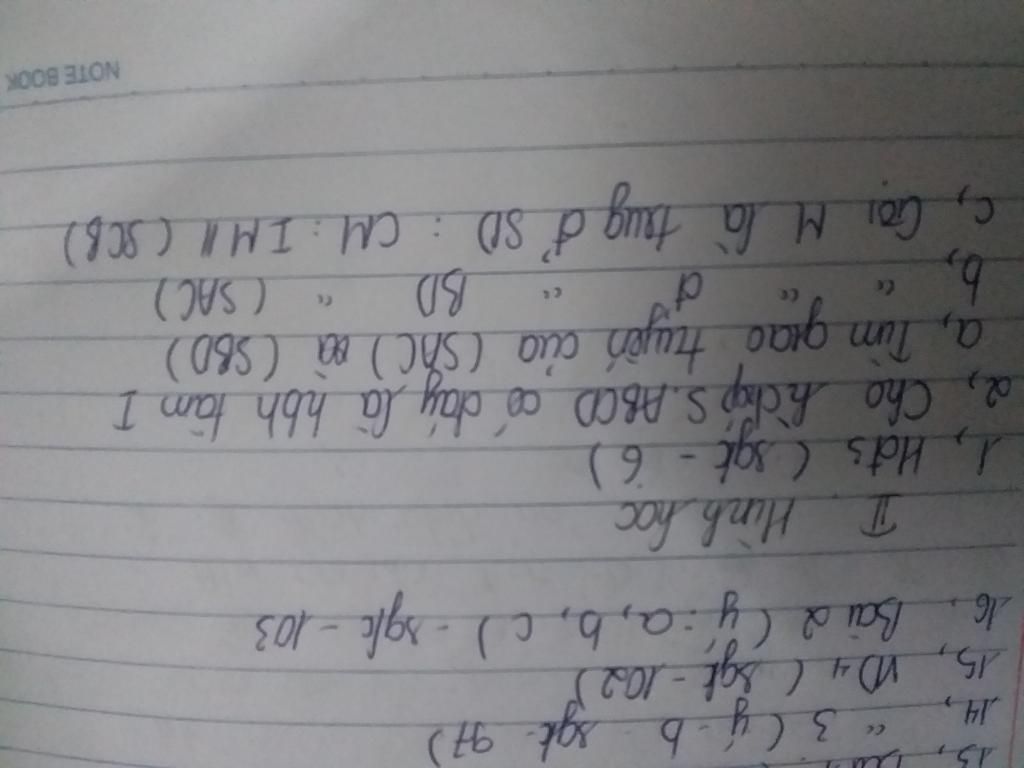 13, Bài
14, " 3 (ý - b sgk 97)
15, VD4 (sgk - 102)
16, Bài 2 (ý: a, b, c) - sgk - 103
II Hình học
1, Hđ3 (sgk - 6)
2, Cho h.chóp S.ABCD có đáy là hbh tâm I
a, Tìm giao tuyến của (SAC) và (SBD)
b, " " đ² BD " (SAC)
c, Gọi M là trug đ² SD : CM : IM // (SCB)
NOTE BOOK